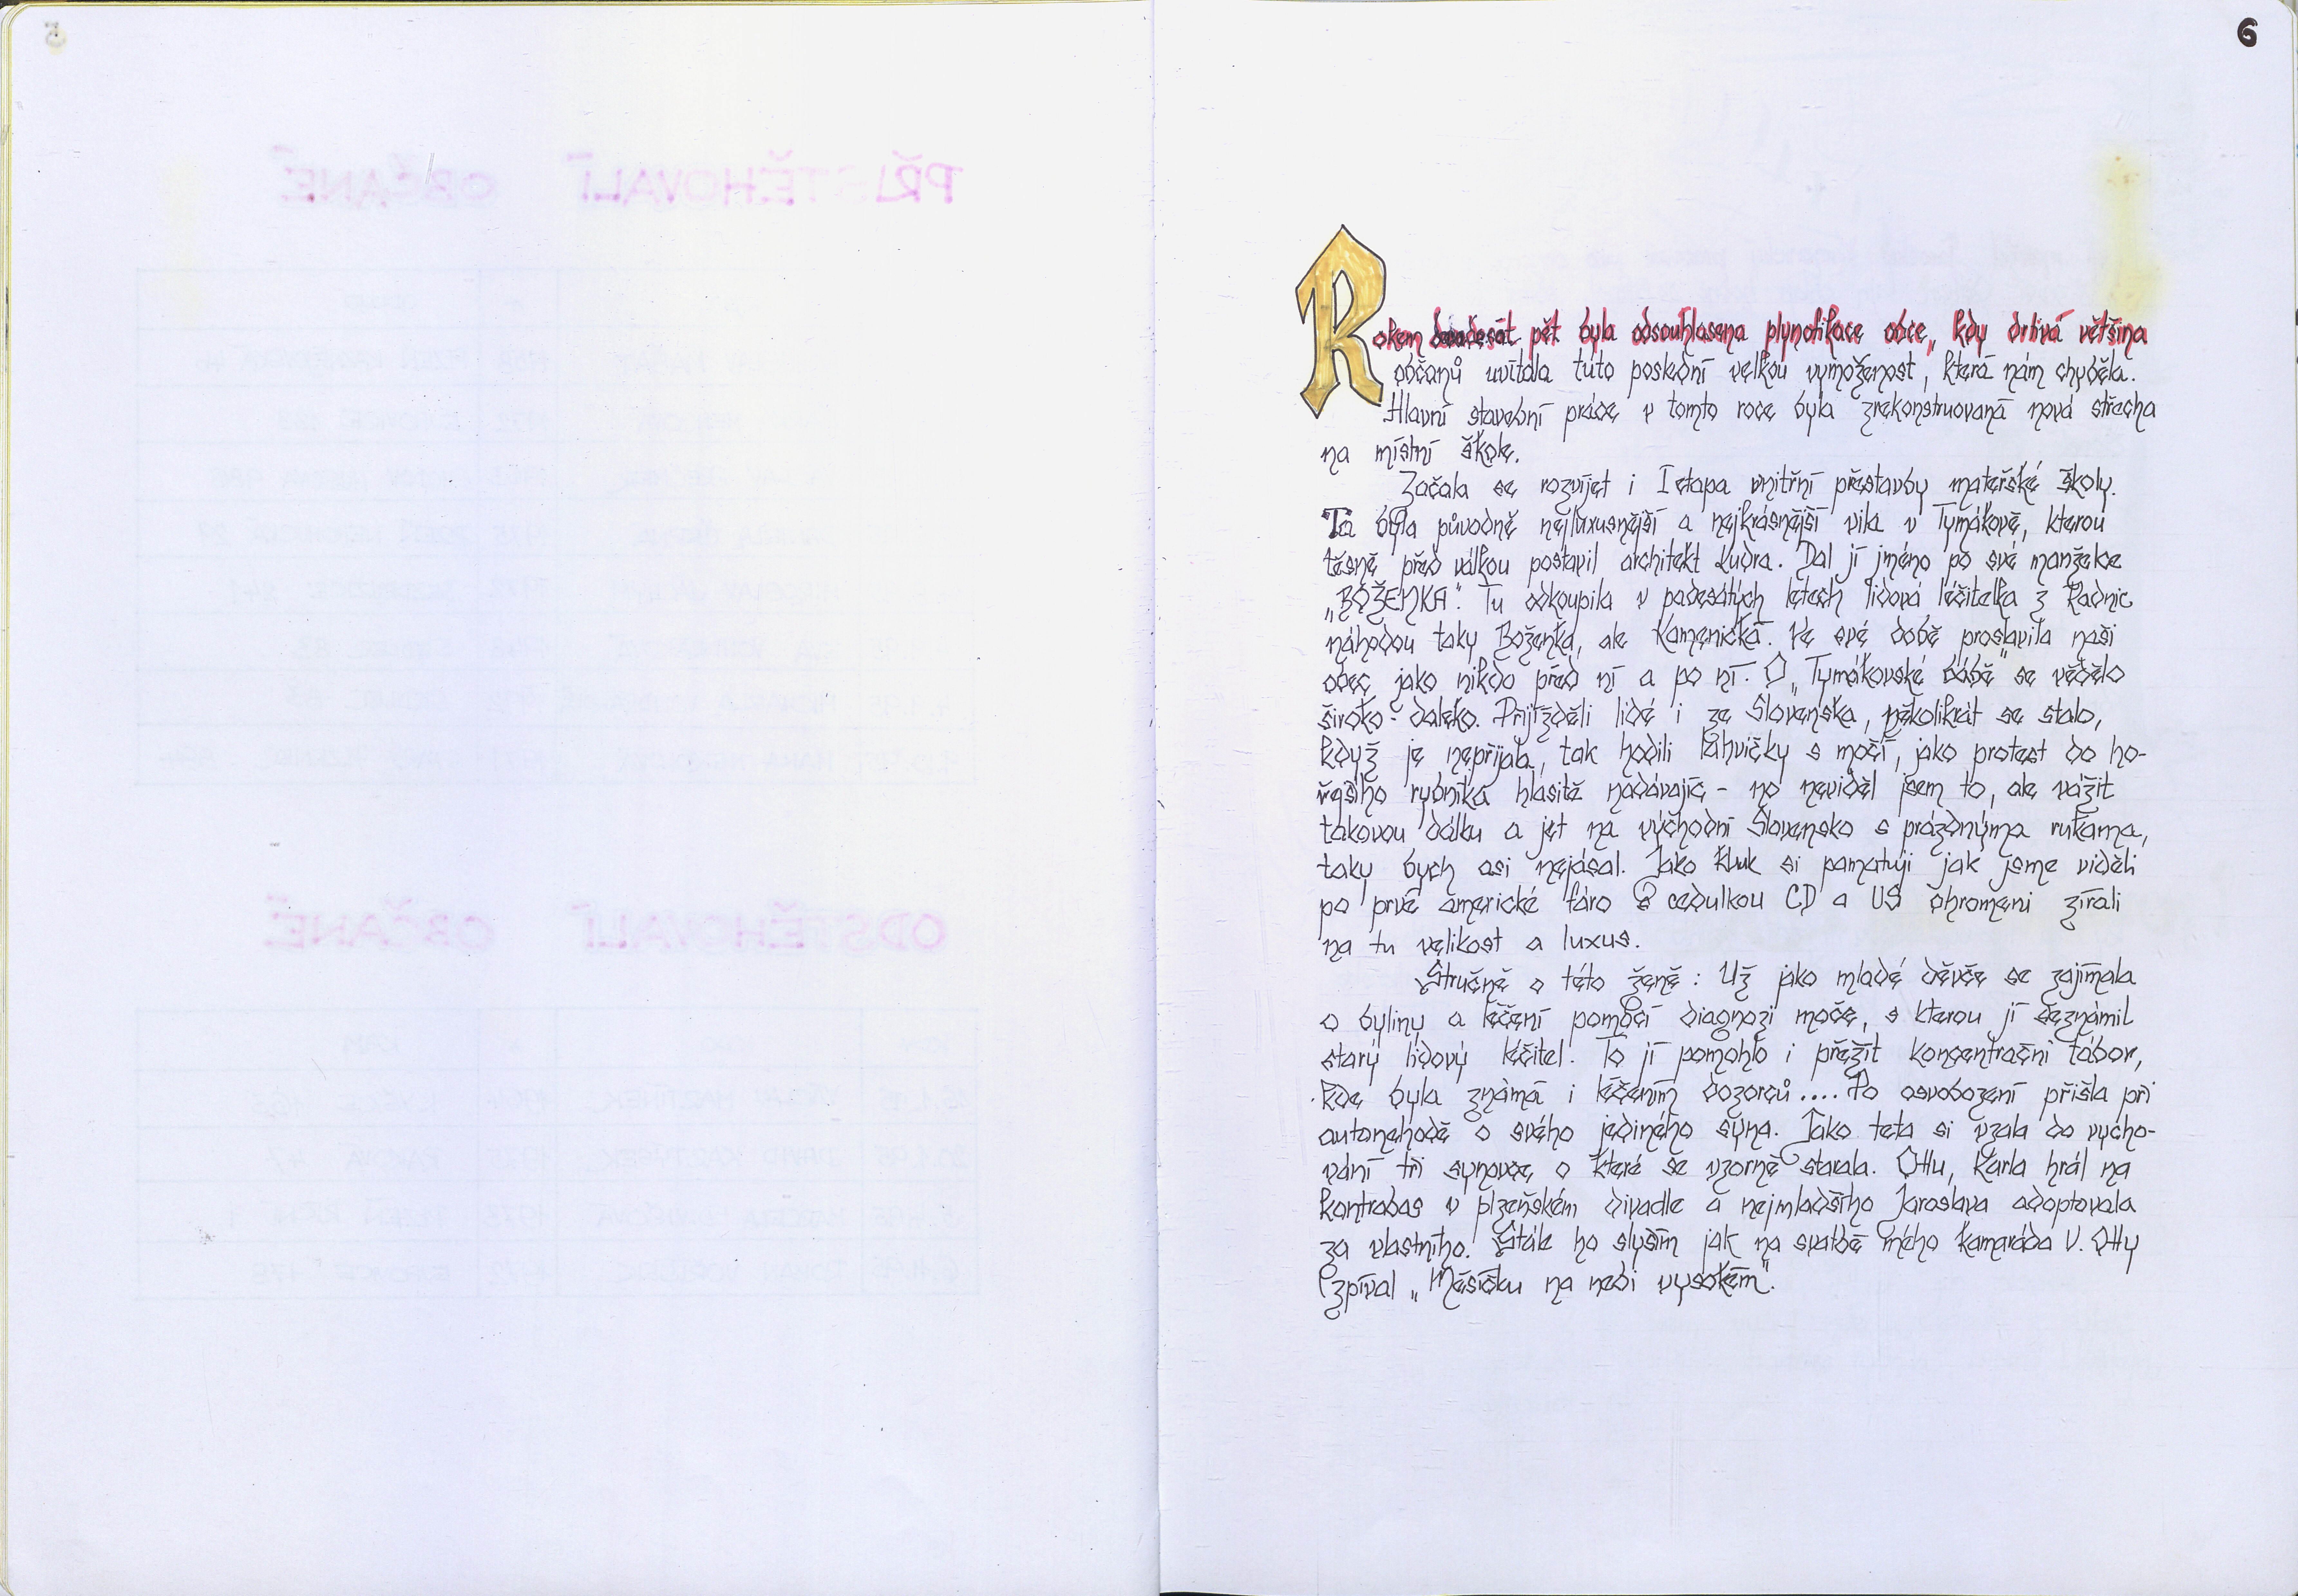 6
Rokem devadesát pět byla odsouhlasena plynofikace obce, kdy drtivá většina
občanů uvítala tuto poslední velkou vymoženost, která nám chyběla.
Hlavní stavební práce v tomto roce byla zrekonstruovaná nová střecha
na místní škole.
Začala se rozvíjet i I etapa vnitřní přestavby mateřské školy.
Ta byla původně nejluxusnější a nejkrásnější vila v Tymákově, kterou
těsně před válkou postavil architekt Kudra. Dal jí jméno po své manželce
„BOŽENKA". Tu odkoupila v padesátých letech lidová léčitelka z Radnic
náhodou taky Boženka, ale Kamenická. Ve své době proslavila naši
obec jako nikdo před ní a po ní. O „Tymákovské bábě" se vědělo
široko - daleko. Přijížděli lidé i ze Slovenska, několikrát se stalo,
když je nepřijala, tak hodili láhvičky s močí, jako protest do ho-
řejšího rybníka hlasitě nadávajíc - no neviděl jsem to, ale vážit
takovou dálku a jet na východní Slovensko s prázdnýma rukama,
taky bych asi nejásal. Jako kluk si pamatuji jak jsme viděli
po prvé americké fáro s cedulkou CD a US ohromeni zírali
na tu velikost a luxus.
Stručně o této ženě: Už jako mladé děvče se zajímala
o byliny a léčení pomocí diagnozi moče, s kterou jí seznámil
starý lidový léčitel. To jí pomohlo i přežít koncentrační tábor,
kde byla známá i léčením dozorců.... Po osvobození přišla při
autonehodě o svého jediného syna. Jako teta si vzala do vycho-
vání tři synovce, o které se vzorně starala. Ottu, Karla hrál na
kontrabas v plzeňském divadle a nejmladšího Jaroslava adoptovala
za vlastního. Stále ho slyším jak na svatbě mého kamaráda V. Otty
zpíval „Měsíčku na nebi vysokém".